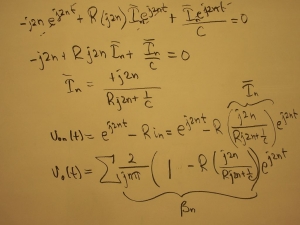 -j2n e^{j2nt} + R(j2n) Ĩ_n e^{j2nt} + Ĩ_n e^{j2nt}/C = 0
-j2n + Rj2n Ĩ_n + Ĩ_n/C = 0
Ĩ_n = +j2n/(Rj2n + 1/C)
Ĩ_n
v_{on}(t) = e^{j2nt} - R i_n = e^{j2nt} - R (j2n/(Rj2n + 1/C)) e^{j2nt}
v_o(t) = ∑ 2/(jnπ) (1 - R (j2n/(Rj2n + 1/C))) e^{j2nt}
β_n